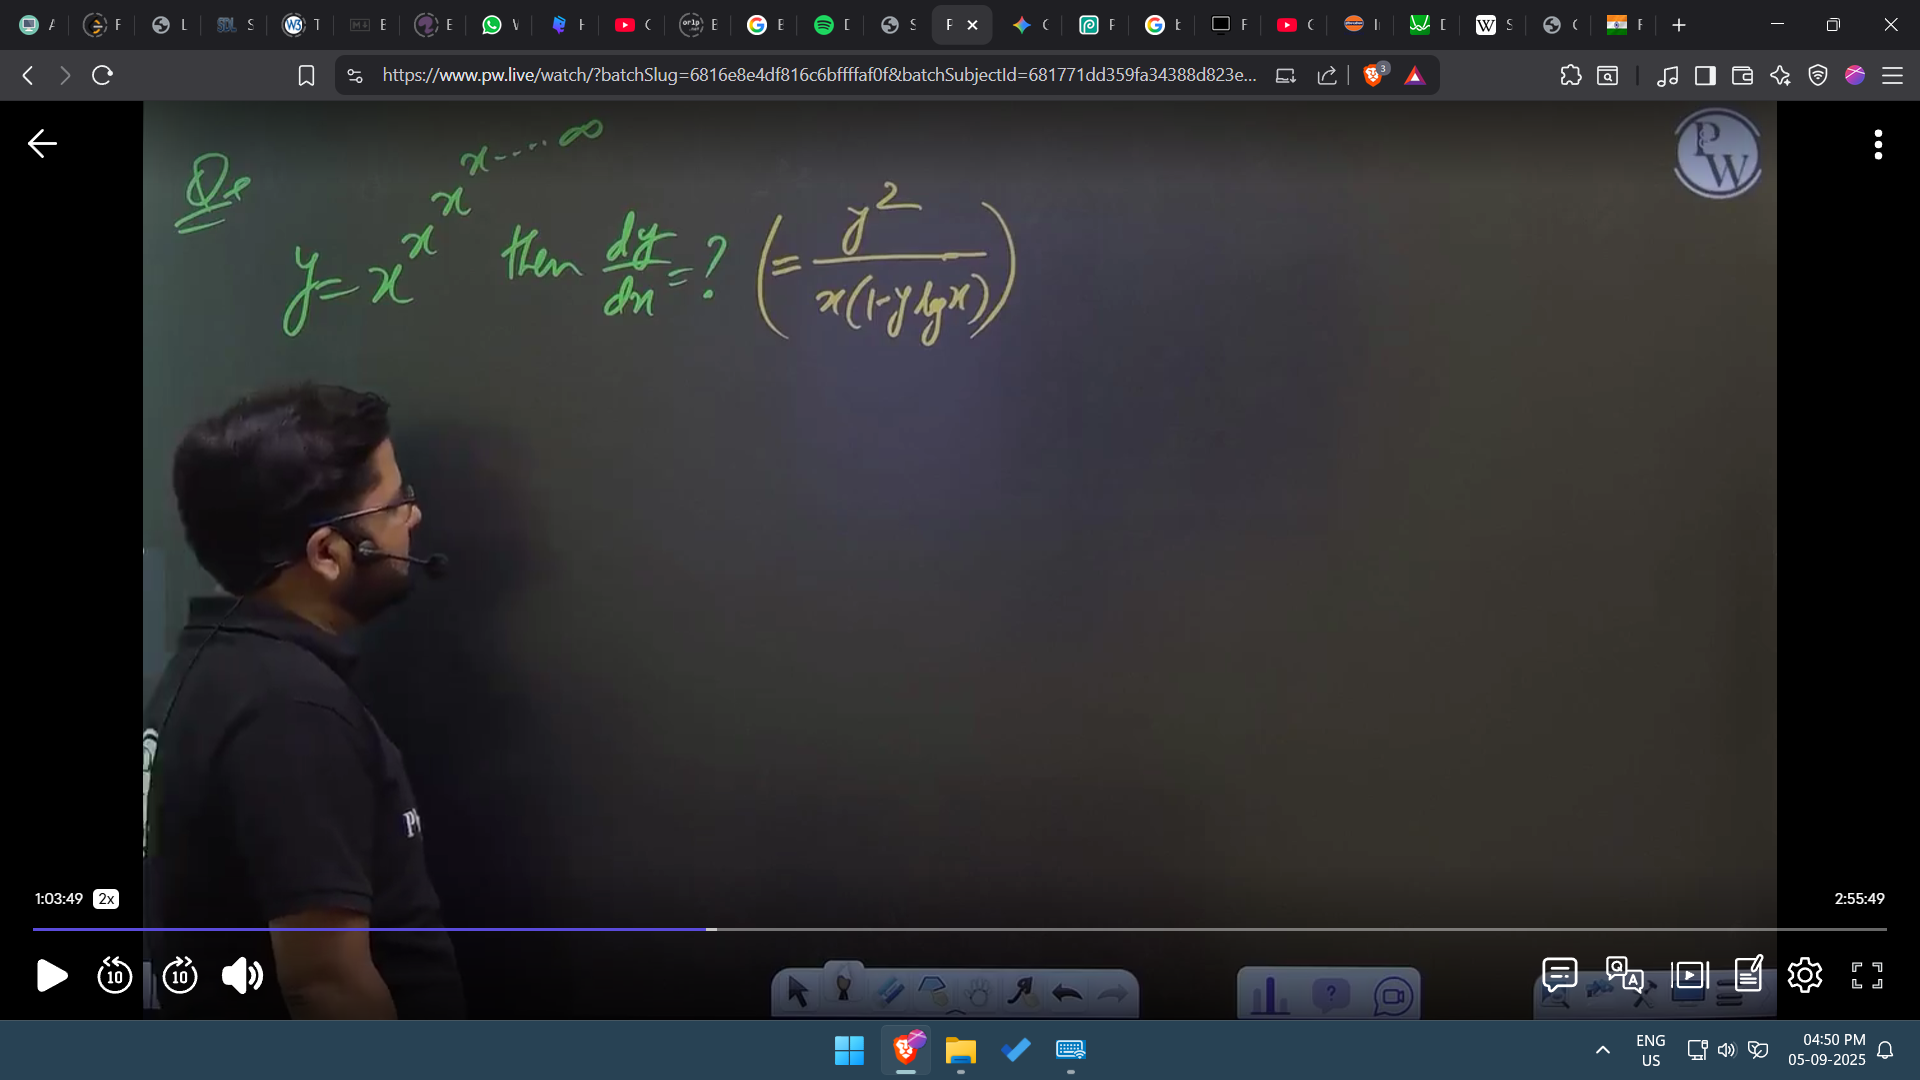 A F L S T E E W H C E E D S F C P t F C I D S C F
https://www.pw.live/watch/?batchSlug=6816e8e4df816c6bffffaf0f&batchSubjectId=681771dd359fa34388d823e... 3
PW
Qs
y = x^x^x^x....∞ then dy/dx = ? (= y^2/x(1-y log x))
1:03:49 2x 2:55:49
10 10
ENG 04:50 PM
US 05-09-2025